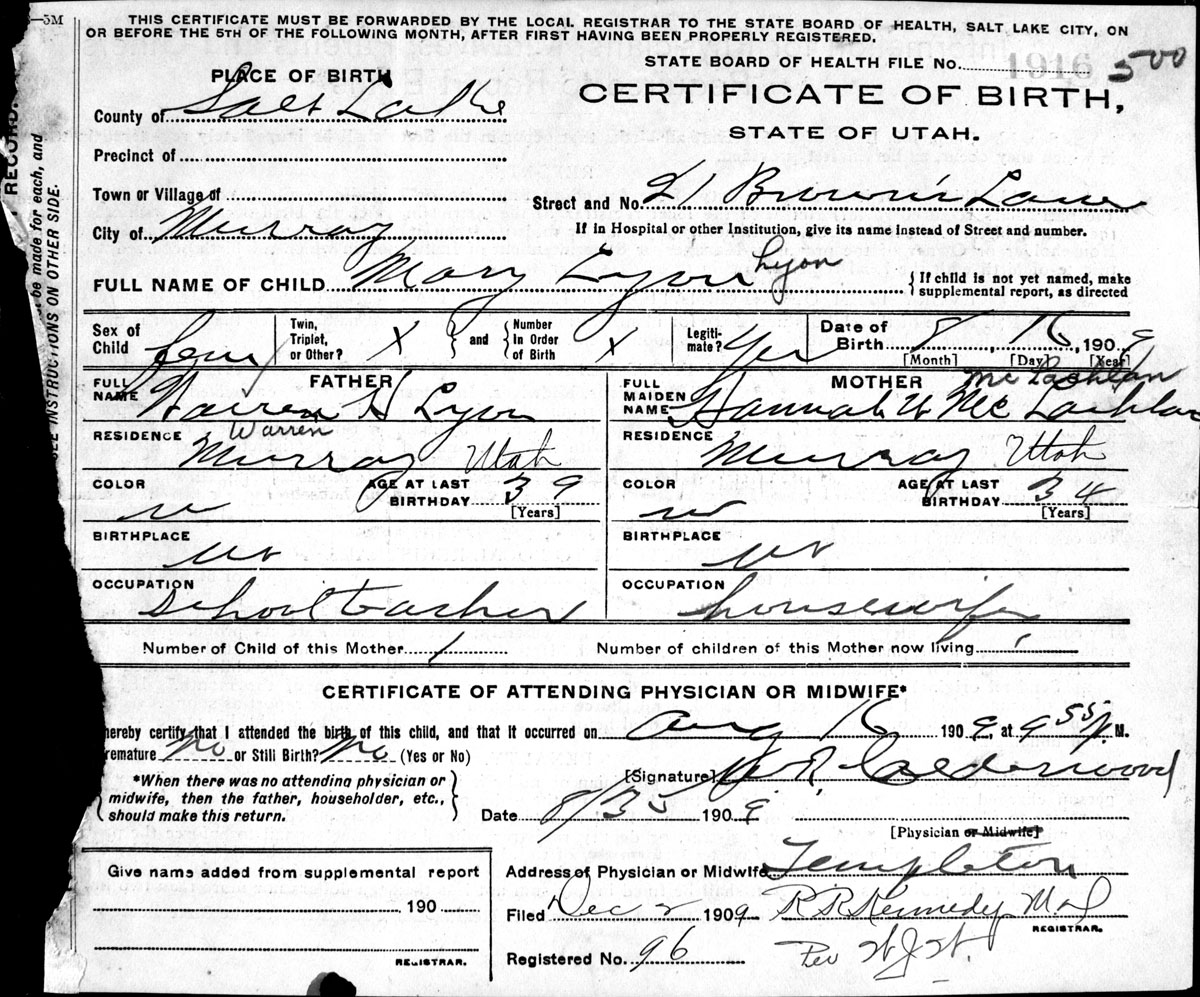 —3M
THIS CERTIFICATE MUST BE FORWARDED BY THE LOCAL REGISTRAR TO THE STATE BOARD OF HEALTH, SALT LAKE CITY, ON
OR BEFORE THE 5TH OF THE FOLLOWING MONTH, AFTER FIRST HAVING BEEN PROPERLY REGISTERED.
STATE BOARD OF HEALTH FILE No. 1916 500
PLACE OF BIRTH
CERTIFICATE OF BIRTH,
STATE OF UTAH.
County of Salt Lake
Precinct of
Town or Village of
Street and No. 21 Brown's Lane
City of Murray
If in Hospital or other Institution, give its name instead of Street and number.
FULL NAME OF CHILD Mary Lyon Lyon
{If child is not yet named, make
supplemental report, as directed
Sex of Child Fem
Twin, Triplet, or Other? X } and { Number In Order of Birth X
Legiti-mate? Yes
Date of Birth 8, 16, 1909
[Month] [Day] [Year]
FULL NAME FATHER Warren H Lyon
Warren
FULL MAIDEN NAME MOTHER McLachlan
Hannah McLachlan
RESIDENCE Murray Utah
RESIDENCE Murray Utah
COLOR w AGE AT LAST BIRTHDAY 39 [Years]
COLOR w AGE AT LAST BIRTHDAY 34 [Years]
BIRTHPLACE Ut
BIRTHPLACE Ut
OCCUPATION School teacher
OCCUPATION housewife
Number of Child of this Mother 1
Number of children of this Mother now living 1
CERTIFICATE OF ATTENDING PHYSICIAN OR MIDWIFE*
hereby certify that I attended the birth of this child, and that it occurred on Aug 16 1909, at 9 55 P. M.
remature No or Still Birth? No (Yes or No)
*When there was no attending physician or
midwife, then the father, householder, etc.,
should make this return.
[Signature] Calderwood
Date 8/ 1909
[Physician or Midwife]
Give name added from supplemental report
190
REGISTRAR.
Address of Physician or Midwife Templeton
Filed Dec 2 1909 R R Kennedy M D
REGISTRAR.
Registered No. 96 Per W J W.
RECORD.
be made for each, and
SEE INSTRUCTIONS ON OTHER SIDE.